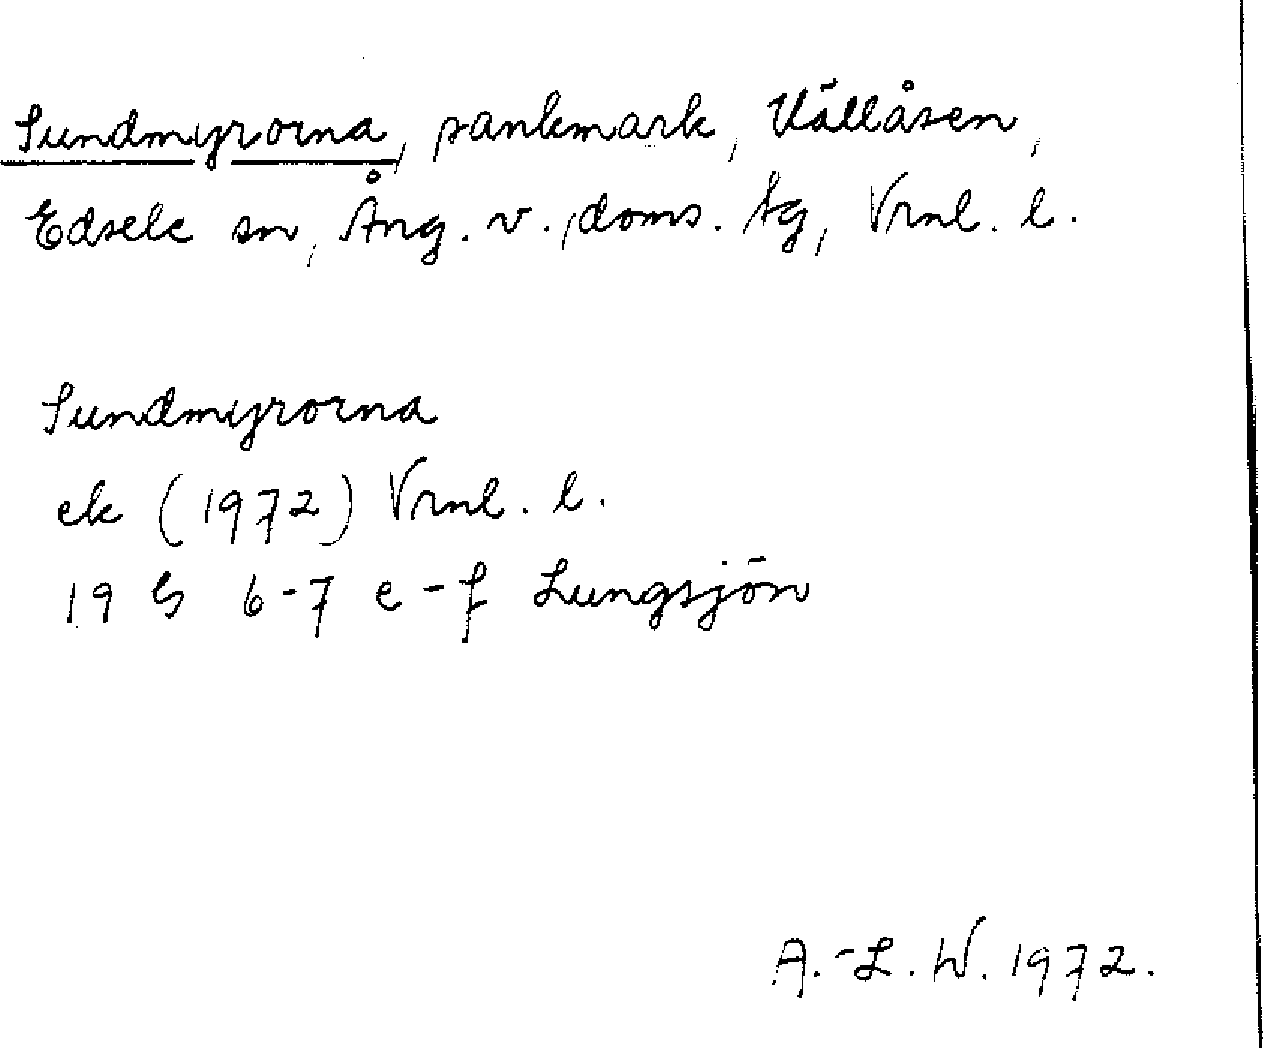 Sundmyrorna, sankmark, Vällåsen,
Edsele sn, Ång. v. doms. tg, Vrnl. l.
Sundmyrorna
ek (1972) Vrnl. l.
19 G 6-7 e-f Lungsjön
A.-L. W. 1972.